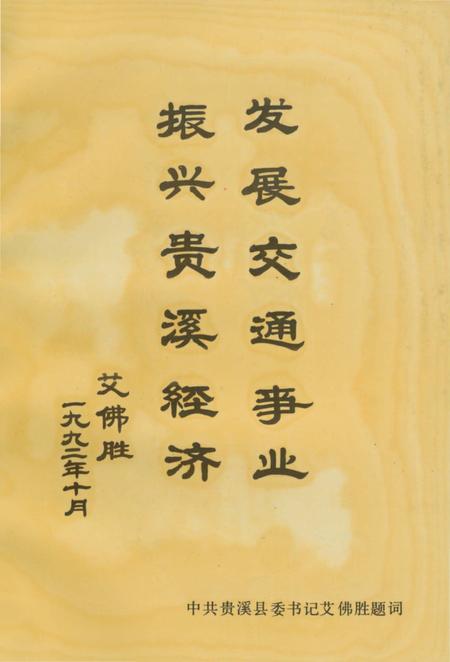 发展交通事业
振兴贵溪经济
艾佛胜
一九九二年十月
中共贵溪县委书记艾佛胜题词